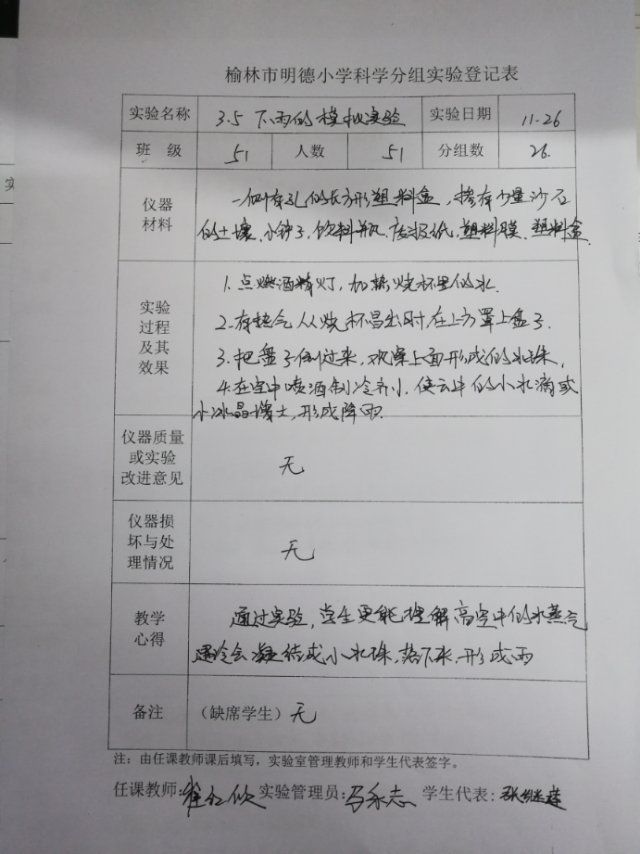 榆林市明德小学科学分组实验登记表
实验名称 3.5 下雨的模拟实验 实验日期 11.26
班 级 51 人数 51 分组数 26
仪器材料 一侧有孔的长方形塑料盒，掺有少量沙石
的土壤、小铲子、饮料瓶、废报纸、塑料膜、塑料盒
实验过程及其效果 1.点燃酒精灯，加热烧杯里的水.
2.有热气从烧杯冒出时在上方罩上盘子.
3.把盘子倒过来，观察上面形成的水珠，
4.在空中喷洒制冷剂，使云中的小水滴或
小冰晶增大，形成降雨.
仪器质量或实验改进意见 无
仪器损坏与处理情况 无
教学心得 通过实验，学生更能理解高空中的水蒸气
遇冷会凝结成小水珠，落下来，形成雨
备注 （缺席学生）无
注：由任课教师课后填写，实验室管理教师和学生代表签字。
任课教师: 实验管理员:马永志 学生代表: